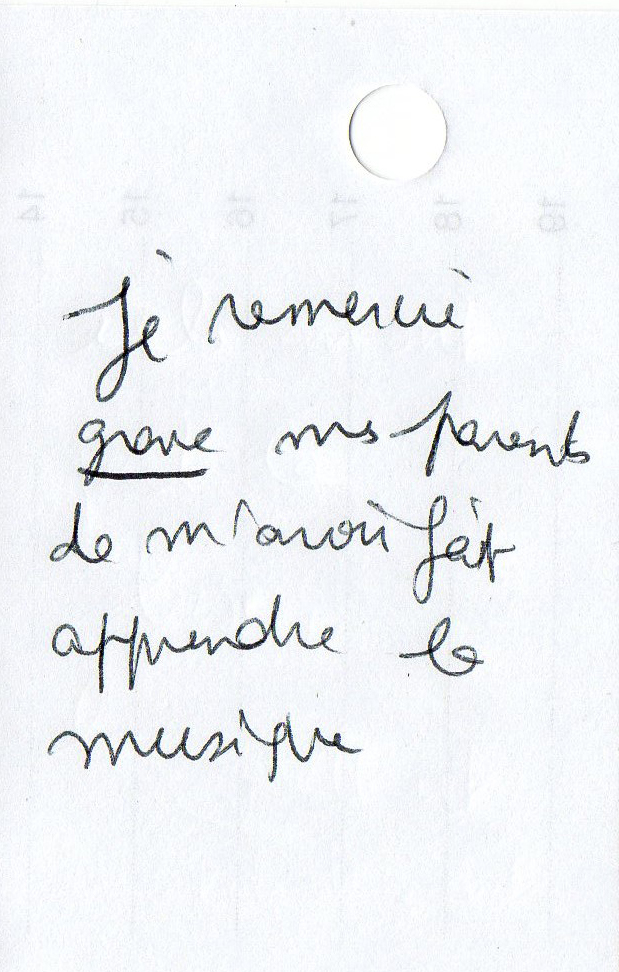 14 15 16 17 18 19
Je remercie
grave mes parents
de m'avoir fait
apprendre la
musique